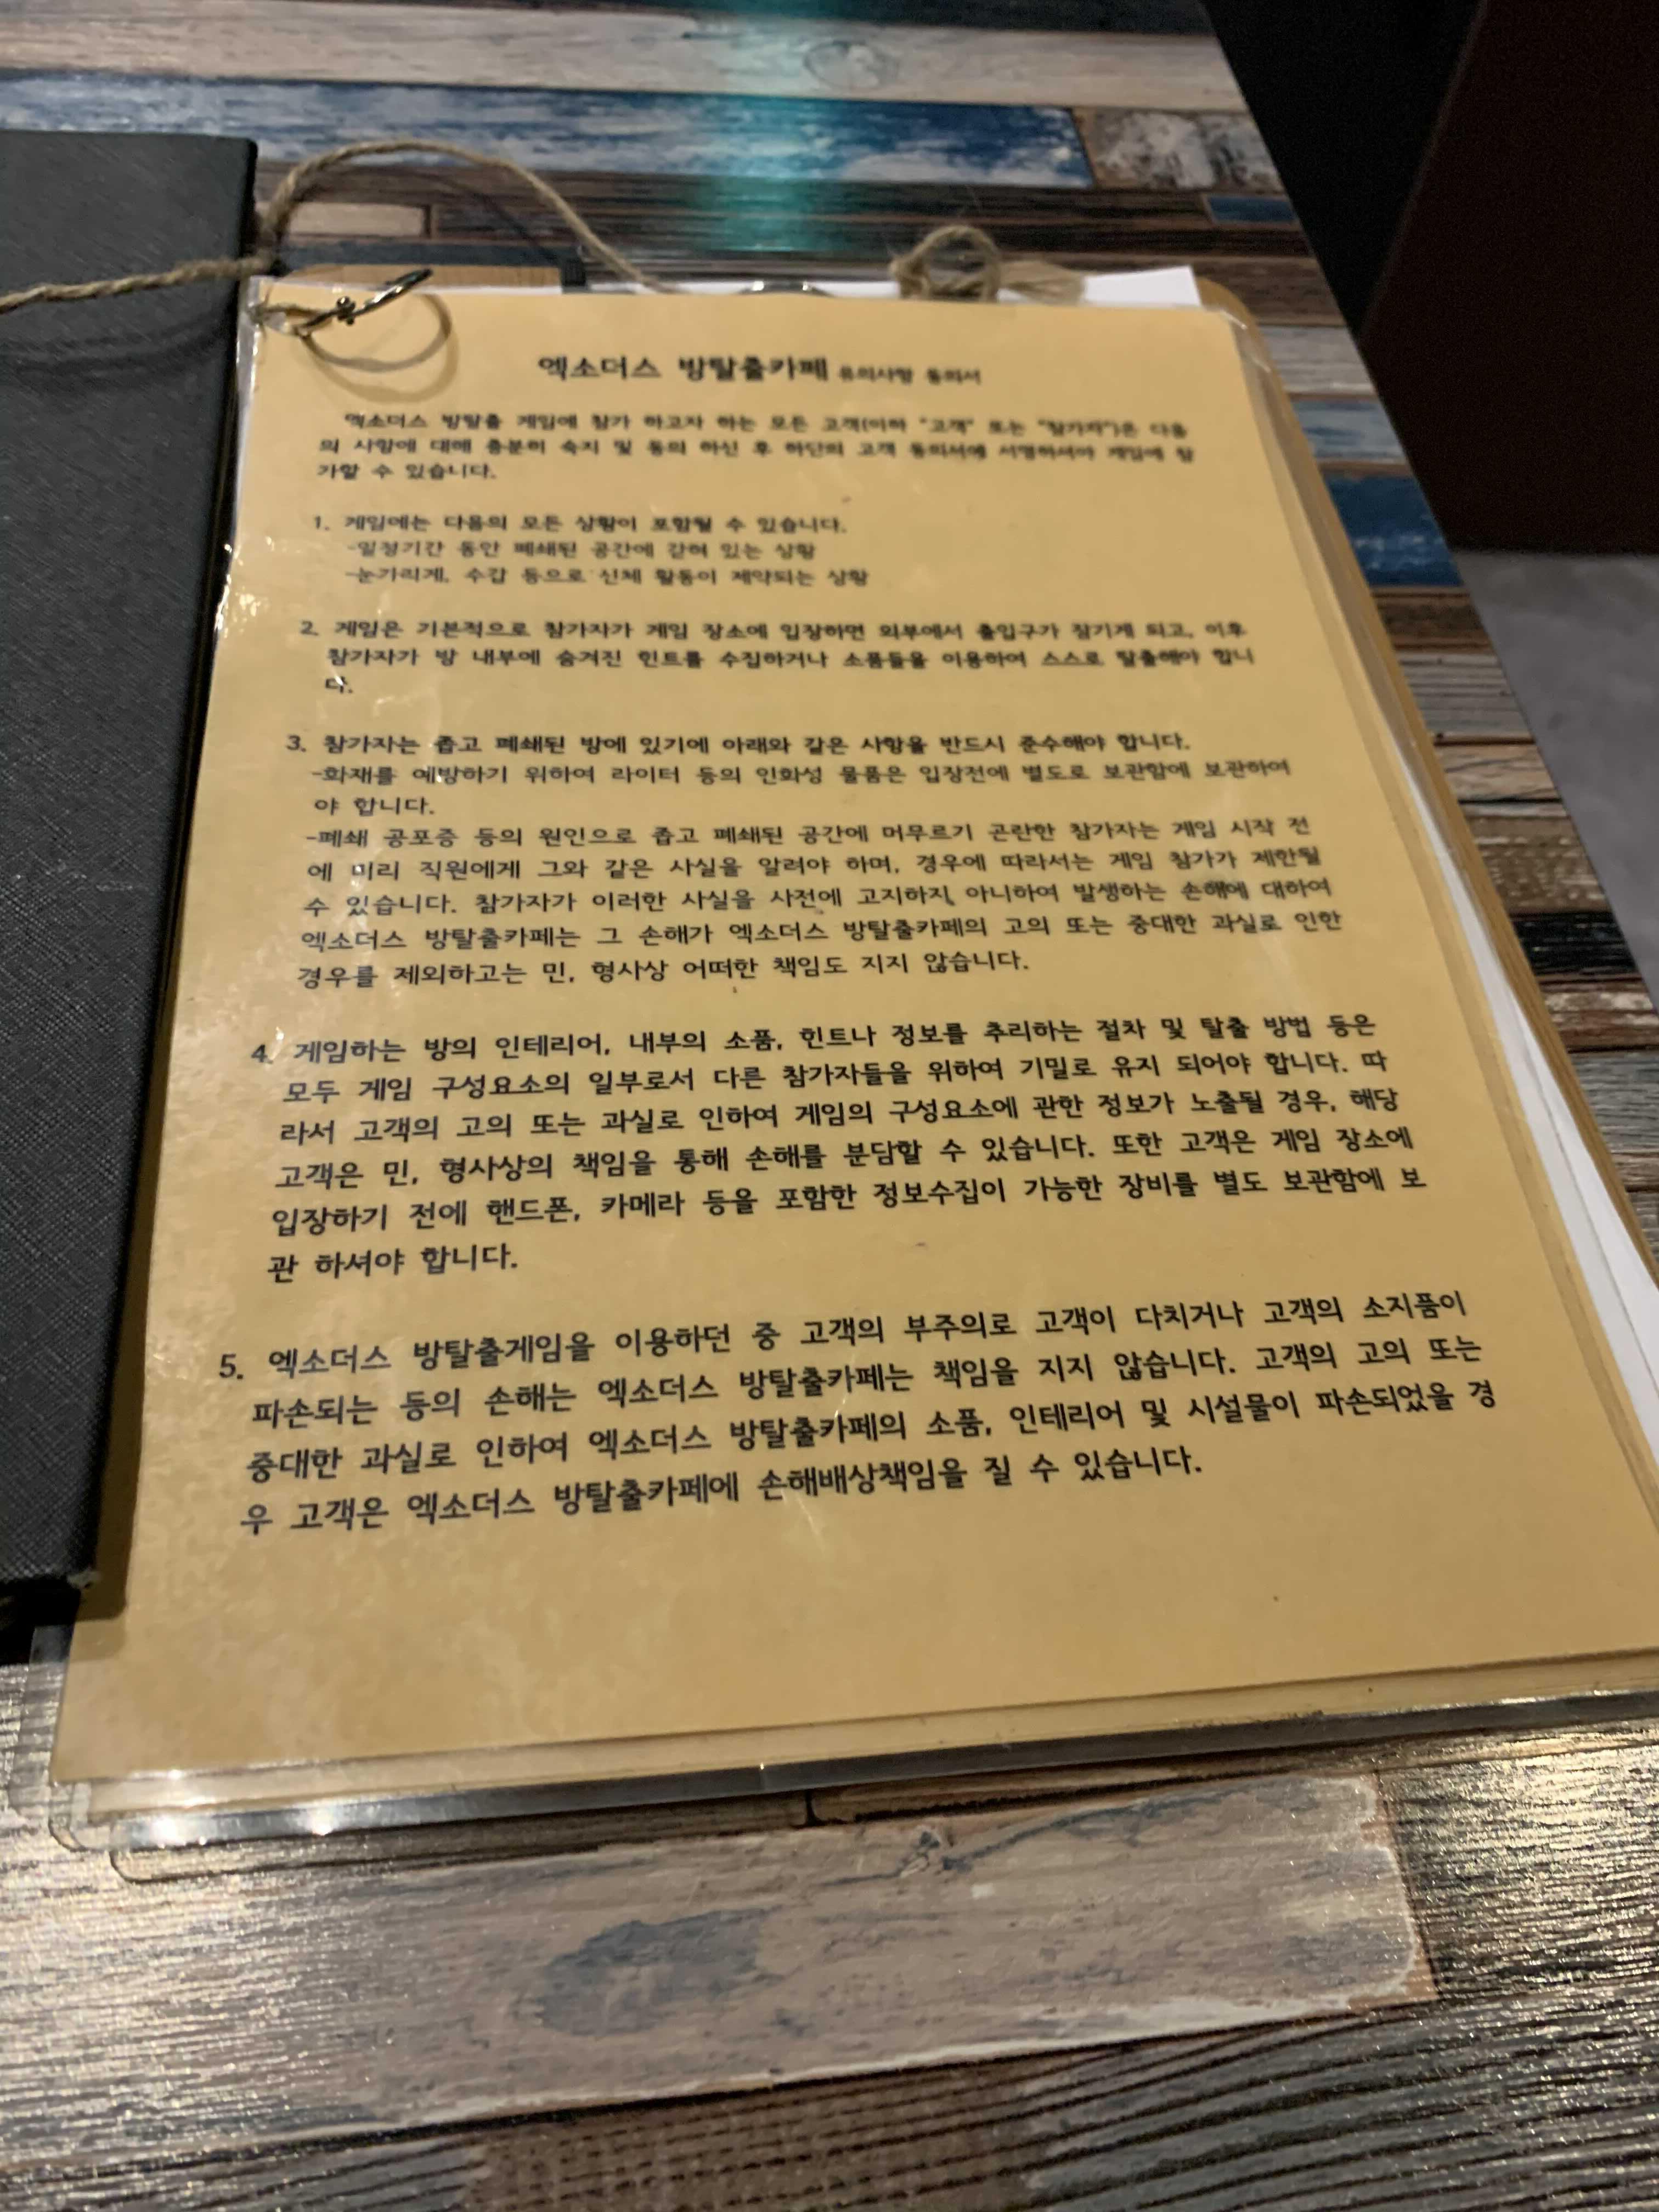 엑소더스 방탈출카페 유의사항 동의서
엑소더스 방탈출 게임에 참가 하고자 하는 모든 고객(이하 "고객" 또는 "참가자")은 다음
의 사항에 대해 충분히 숙지 및 동의 하신 후 하단의 고객 동의서에 서명하셔야 게임에 참
가할 수 있습니다.
1. 게임에는 다음의 모든 상황이 포함될 수 있습니다.
-일정기간 동안 폐쇄된 공간에 갇혀 있는 상황
-눈가리게, 수갑 등으로 신체 활동이 제약되는 상황
2. 게임은 기본적으로 참가자가 게임 장소에 입장하면 외부에서 출입구가 잠기게 되고, 이후
참가자가 방 내부에 숨겨진 힌트를 수집하거나 소품들을 이용하여 스스로 탈출해야 합니
다.
3. 참가자는 좁고 폐쇄된 방에 있기에 아래와 같은 사항을 반드시 준수해야 합니다.
-화재를 예방하기 위하여 라이터 등의 인화성 물품은 입장전에 별도로 보관함에 보관하여
야 합니다.
-폐쇄 공포증 등의 원인으로 좁고 폐쇄된 공간에 머무르기 곤란한 참가자는 게임 시작 전
에 미리 직원에게 그와 같은 사실을 알려야 하며, 경우에 따라서는 게임 참가가 제한될
수 있습니다. 참가자가 이러한 사실을 사전에 고지하지 아니하여 발생하는 손해에 대하여
엑소더스 방탈출카페는 그 손해가 엑소더스 방탈출카페의 고의 또는 중대한 과실로 인한
경우를 제외하고는 민, 형사상 어떠한 책임도 지지 않습니다.
4. 게임하는 방의 인테리어, 내부의 소품, 힌트나 정보를 추리하는 절차 및 탈출 방법 등은
모두 게임 구성요소의 일부로서 다른 참가자들을 위하여 기밀로 유지 되어야 합니다. 따
라서 고객의 고의 또는 과실로 인하여 게임의 구성요소에 관한 정보가 노출될 경우, 해당
고객은 민, 형사상의 책임을 통해 손해를 분담할 수 있습니다. 또한 고객은 게임 장소에
입장하기 전에 핸드폰, 카메라 등을 포함한 정보수집이 가능한 장비를 별도 보관함에 보
관 하셔야 합니다.
5. 엑소더스 방탈출게임을 이용하던 중 고객의 부주의로 고객이 다치거나 고객의 소지품이
파손되는 등의 손해는 엑소더스 방탈출카페는 책임을 지지 않습니다. 고객의 고의 또는
중대한 과실로 인하여 엑소더스 방탈출카페의 소품, 인테리어 및 시설물이 파손되었을 경
우 고객은 엑소더스 방탈출카페에 손해배상책임을 질 수 있습니다.